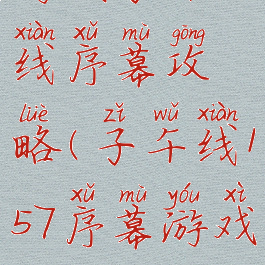 xiàn xǔ mù gōng
线序幕攻
lüè zǐ wǔ xiàn
略(子午线1
xǔ mù yóu xì
57序幕游戏